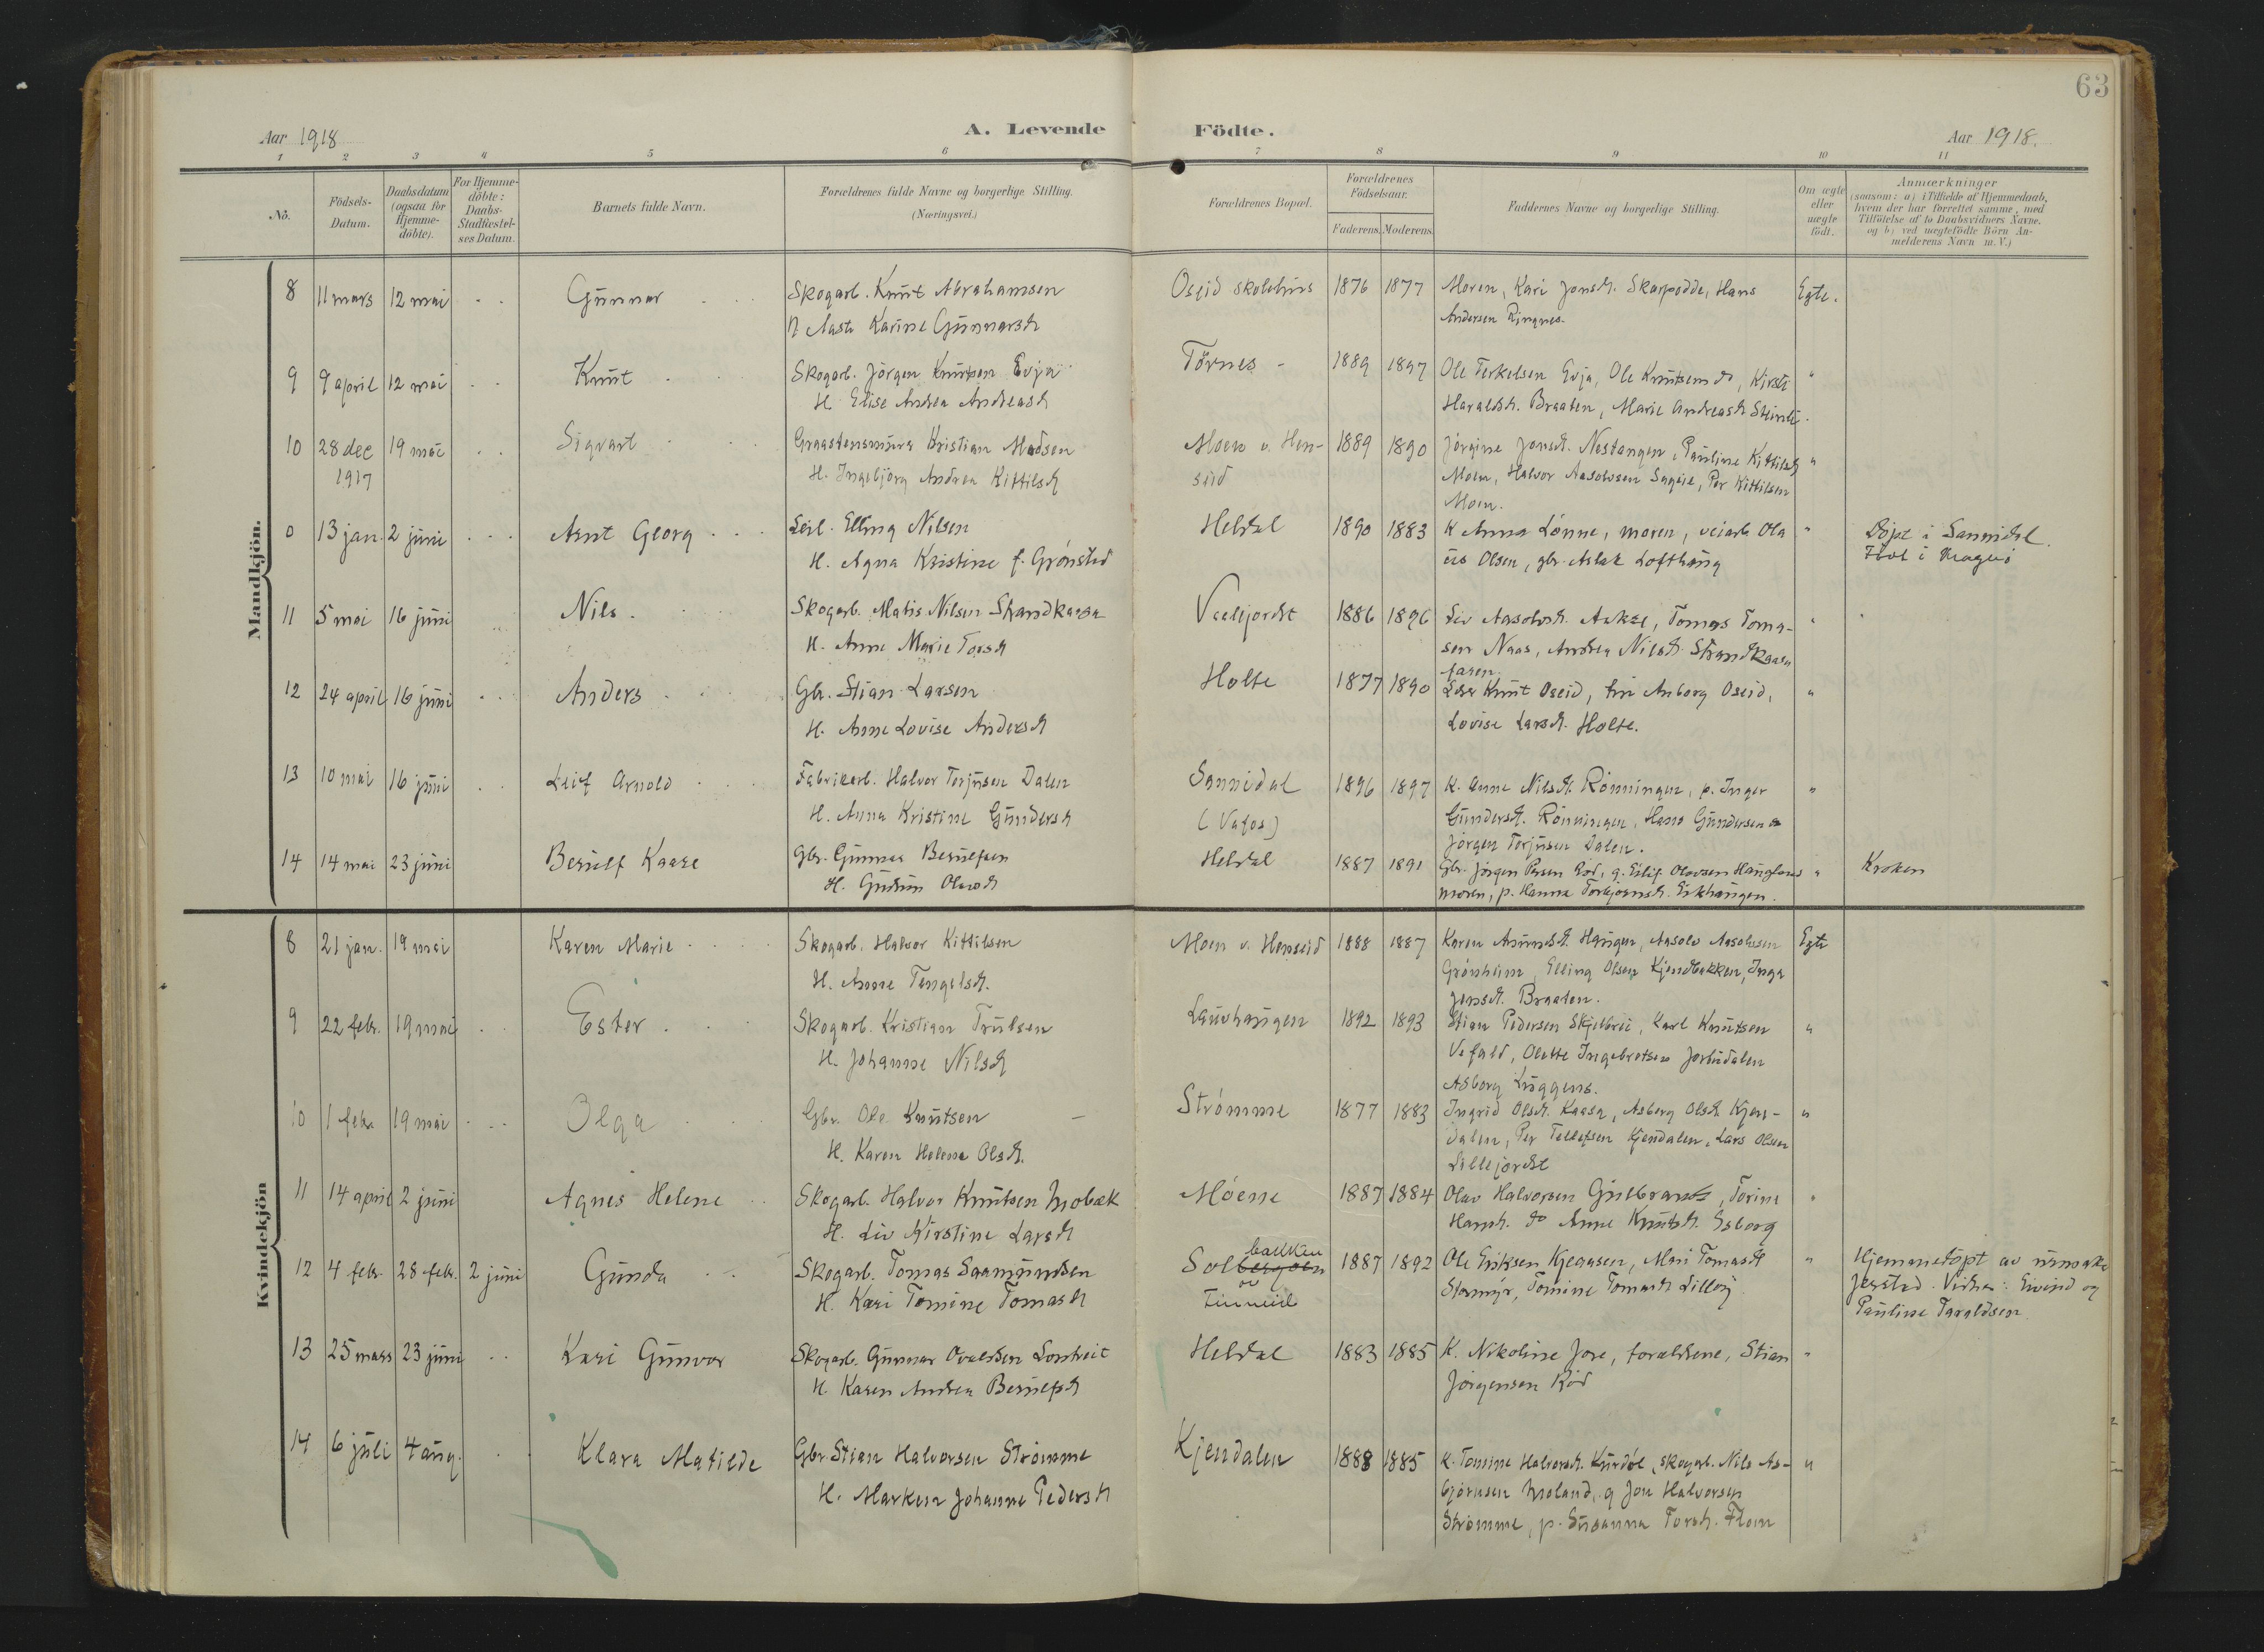 63
Aar 1918
A. Levende Födte.
Aar 1918.
1 2 3 4 5 6 7 8 9 10 11
No.
Födsels-
Datum.
Daabsdatum
(ogsaa for
Hjemme-
döbte).
For Hjemme-
döbte:
Daabs-
Stadfæstel-
ses Datum.
Barnets fulde Navn.
Forældrenes fulde Navne og borgerlige Stilling.
(Næringsvei.)
Forældrenes Bopæl.
Forældrenes
Födselsaar.
Faderens. Moderens.
Faddernes Navne og borgerlige Stilling.
Om ægte
eller
uægte
födt.
Anmærkninger
(saasom: a) i Tilfælde af Hjemmedaab,
hvem der har forrettet samme, med
Tilföielse af to Daabsvidners Navne.
og b) ved uægtefödte Börn An-
melderens Navn m. V.)
Mandkjön.
8 11 mars 12 mai Gunnar Skogarb. Knut Abrahamsen Oseid skolehus 1876 1877 Moren, Kari Jonsd. Skarpodde, Hans Egte.
Aaste Karine Gunnarsd Andersen Ringnes
9 9 april 12 mai Knut Skogarb. Jörgen Knutsen Evja Törnes 1889 1897 Ole Terkelsen Evja, Ole Knutsen do, Kirsti "
H. Elise Andrea Andreasd Haraldsd. Braaten, Marie Andreasd
10 28 dec 19 mai Sigvart Graastensmurer Kristian Madsen Moen v. Hen- 1889 1890 Jörgine Jonsd. Nestangen, Pauline Kittilsd "
1917 H. Ingebjörg Andrea Kittilsd seid Moen, Halvor Aasolvsen Sageie, Per Kittilsen
Moen.
0 13 jan. 2 juni Arnt Georg Leil. Elling Nilsen Heldal 1890 1883 K Anna Lönne, moren, veiarb Ola "
H. Agna Kristine f. Grönsted us Olsen, gbr. Aslak Lofthaug
Döpt i Sannidal.
Fbol i Kragerö
11 5 mai 16 juni Nils Skogarb. Matis Nilsen Strandkaasa 1886 1896 Liv Aasolvsd. Tomas Toma- "
H. Anne Marie Torsd sen Naas, Andrea Nilsd. Strandkaasa
12 24 april 16 juni Anders Gbr. Stian Larsen Holte 1877 1890 Knut Oseid, fru Anborg Oseid, "
H. Anne Lovise Andersd Lovise Larsd. Holte.
13 10 mai 16 juni Leif Arnold Fabrikarb. Halvor Terjusen Dalen Sannidal 1896 1897 K. Anne Nilsd. Rönningen, p. Inger "
H. Anna Kristine Gundersd (Vafos) Gundersd. Rönningen, Hans Gundersen
Jörgen Terjusen Dalen.
14 14 mai 23 juni Berulf Kaare Gbr. Gunnar Berulfsen Heldal 1887 1891 Gbr. Jörgen Persen g. Eilif Olavsen "
H. Gudrun Olavsd moren, p. Hanna Torbjörnsd. Eikhaugen.
Kroken
Kvindekjön
8 21 jan. 19 mai Karen Marie Skogarb. Halvor Kittilsen Moen v. Henseid 1888 1887 Karen Amundsd. Haugen, Aasolv Aasolvsen Egte
H. Anne Tengelsd. Grönheim, Elling Olsen Kjendbakken, Inga
Jensd. Braaten.
9 22 febr. 19 mai Ester Skogarb. Kristian Trulsen Lauvhaugen 1892 1893 Stian Pedersen Skjelbrei, Karl Knutsen "
H. Johanne Nilsd Vefald, Olette Ingebretsen
Asborg Luggens.
10 1 febr 19 mai Olga Gbr. Ole Knutsen Strömme 1877 1883 Ingrid Olsd. Kaasa, Asberg Olsd Kjen- "
H. Karen Helene Olsd. dalen, Per Tellefsen Kjendalen, Lars Olsen
Lillejordet
11 14 april 2 juni Agnes Helene Skogarb. Halvor Knutsen Mobæk Möene 1887 1884 Olav Halvorsen Gulbrands, Torine "
H. Liv Kirstine Larsd Hansd. do Anne Knutsd. Esborg
12 4 febr. 28 febr. 2 juni Gunda Skogarb. Tomas Saamundsen 1887 1892 Ole Eriksen Kjeaasen, Mari Tomasd "
H. Kari Tomine Tomasd Stormyr, Tomine Tomasd
Hjemmedöpt av
Jerstad. Vidner: Eivind og
Pauline Taraldsen
13 25 mars 23 juni Kari Gunvor Skogarb. Gunnar Lonheit Heldal 1883 1885 K. Nikoline Jore, foreldrene, Stian "
H. Karen Andrea Berulfsd Jörgensen Röd
14 6 juli 4 aug. Klara Matilde Gbr. Stian Halvorsen Strömme Kjendalen 1888 1885 K. Tomine Halvorsd. Kurdöl, skogarb. Nils As- "
H. Marken Johanne Pedersd björnsen Moland, g Jon Halvorsen
Strömme, p. Susanna Torsd. Flom